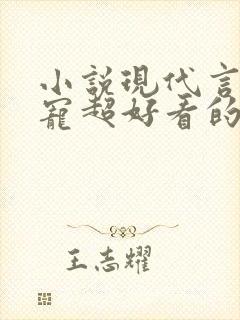 小説現代言
寵超好看的
王志耀